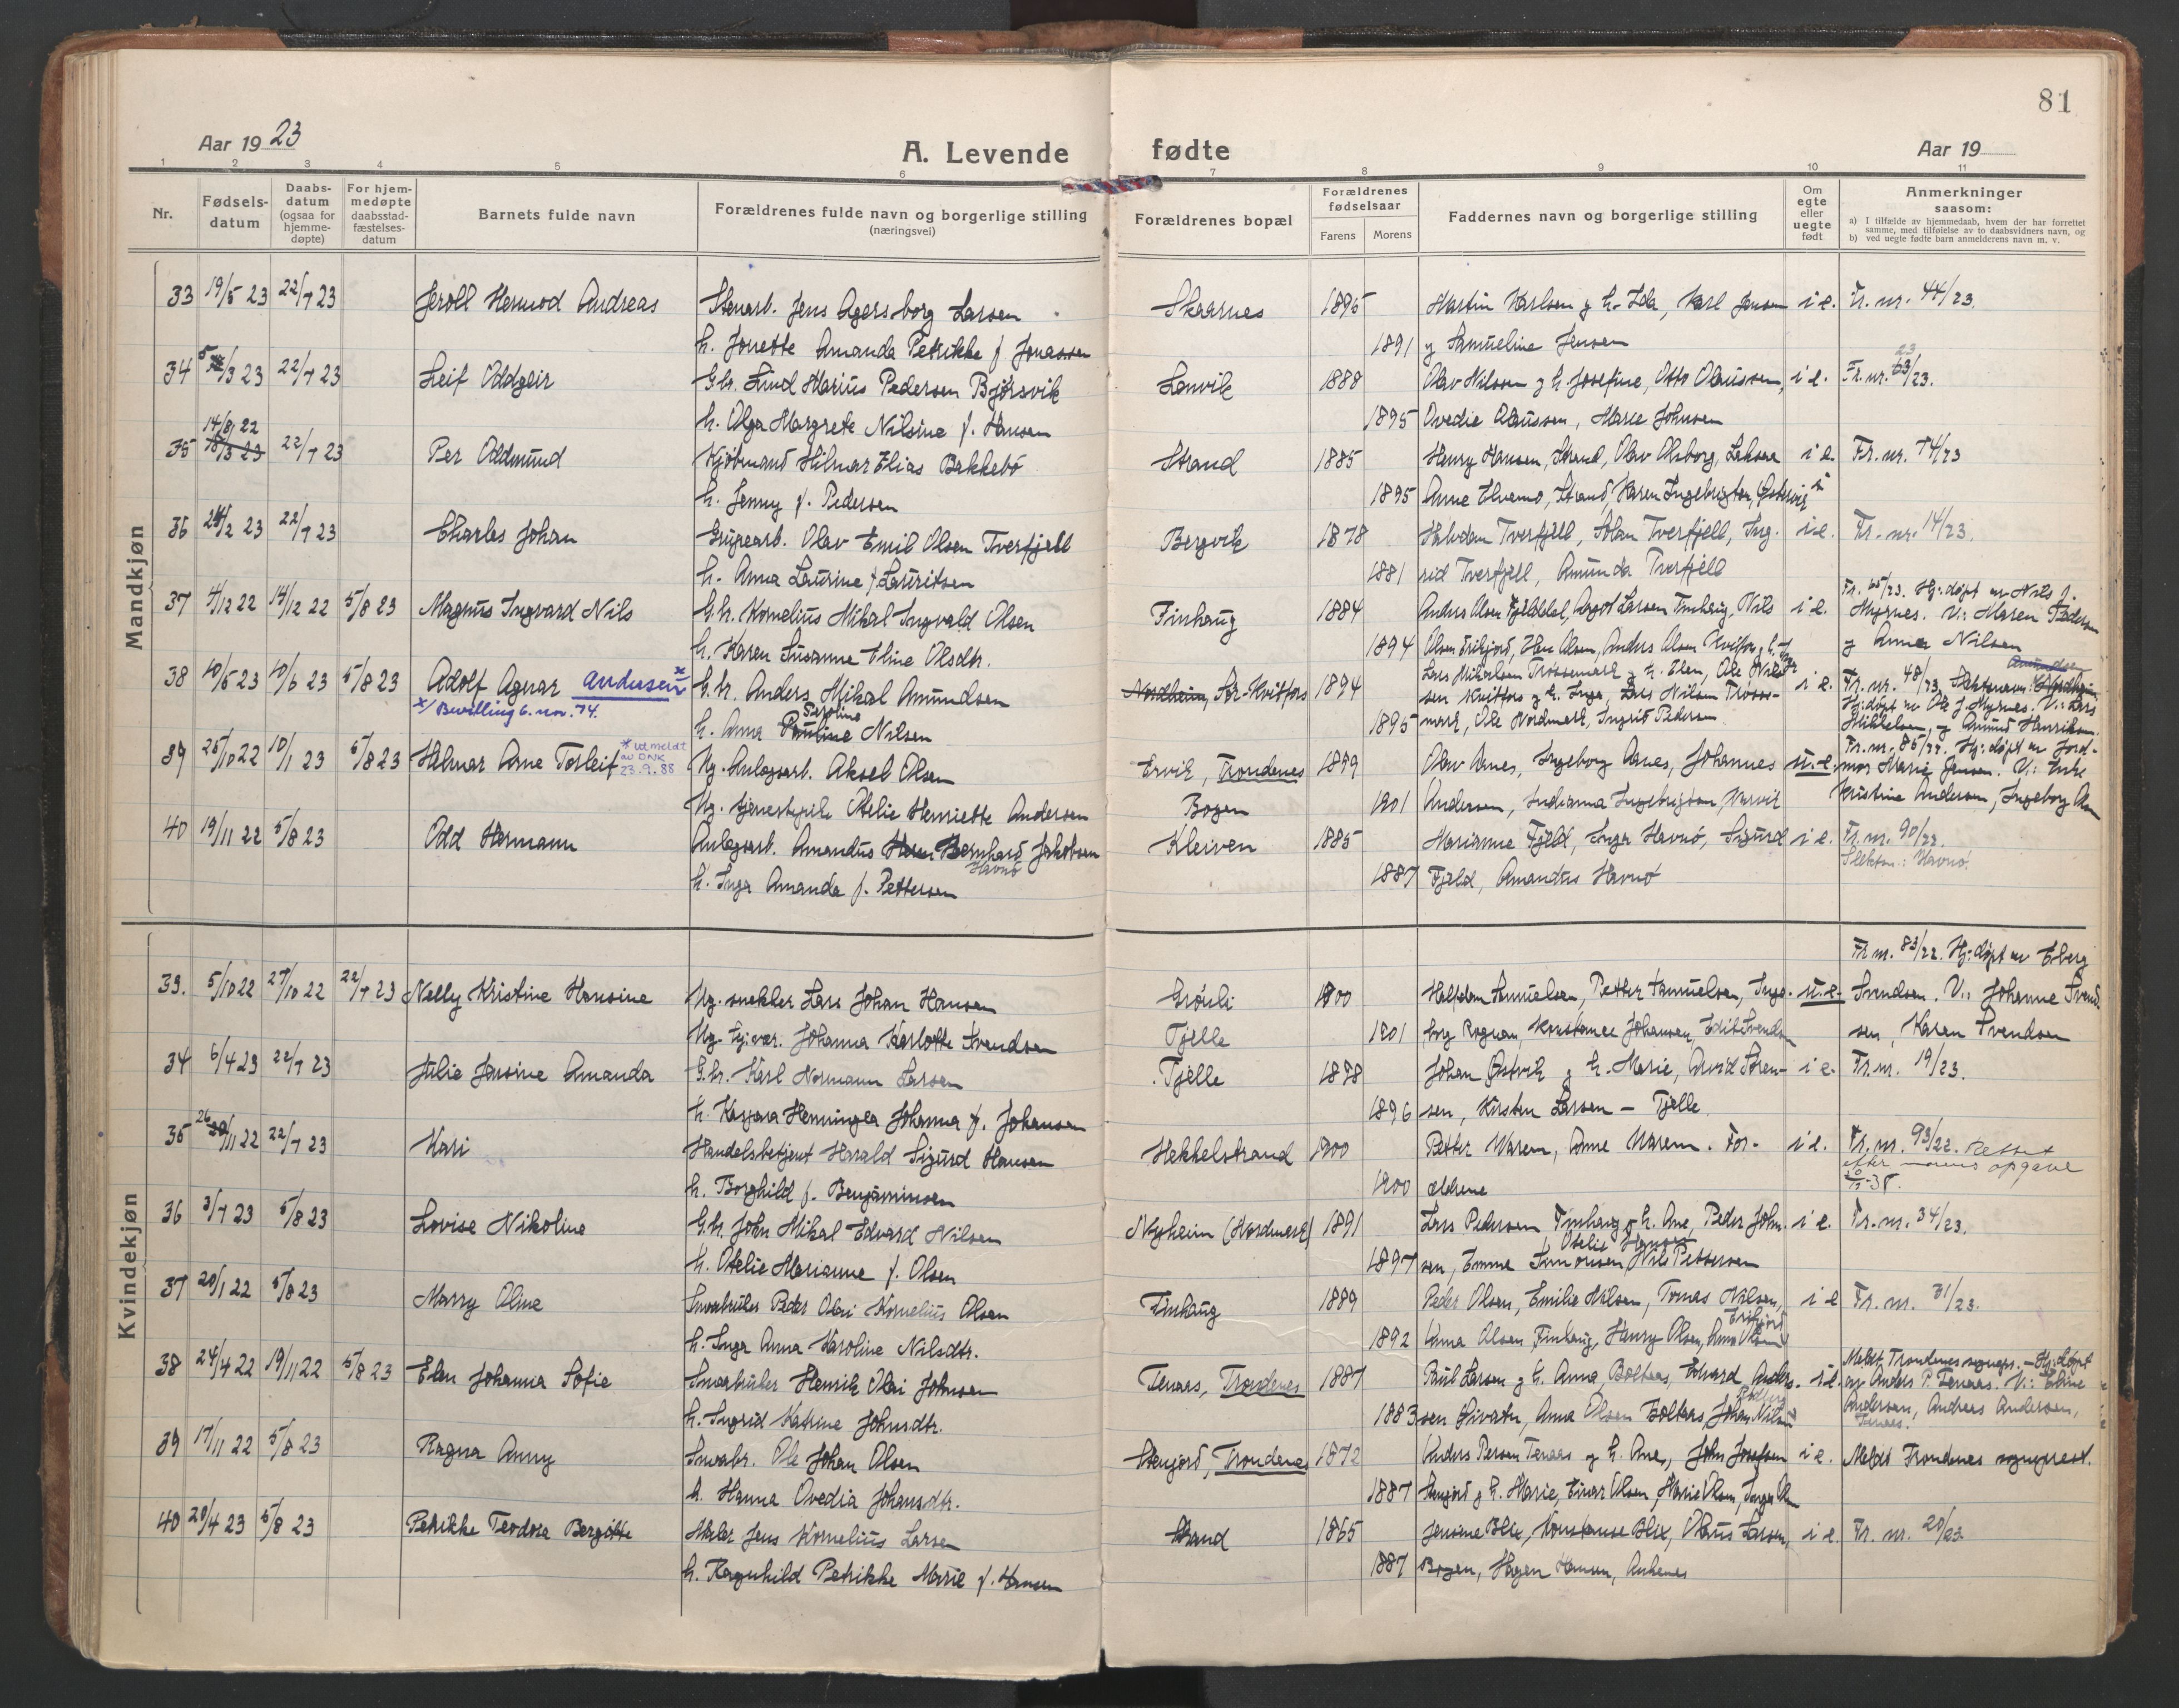 81
Aar 1923
A. Levende fødte
Aar 19
1 2 3 4 5 6 7 8 9 10 11
Nr.
Fødsels-datum
Daabs-datum (ogsaa for hjemme-døpte)
For hjem-medøpte daabsstad-fæstelses-datum
Barnets fulde navn
Forældrenes fulde navn og borgerlige stilling (næringsvei)
Forældrenes bopæl
Forældrenes fødselsaar
Farens Morens
Faddernes navn og borgerlige stilling
Om egte eller uegte født
Anmerkninger saasom:
a) I tilfælde av hjemmedaab, hvem der har forrettet samme, med tilføielse av to daabsvidners navn, og
b) ved uegte fødte barn anmelderens navn m. v.
Mandkjøn
33 19/5 23 22/7 23 Jeroll Hermod Andreas Stenarb. Jens Agersborg Larsen Skaarnes 1895 Martin Karlsen g h. Ida, Karl Jensen i e. Fr. nr. 44/23.
h. Jonette Amanda Petrikke f Jonassen 1891 g Samueline Jensen
34 5/3 23 22/7 23 Leif Oddgeir G.br. Lind Marius Pedersen Bjørsvik Lenvik 1888 Olav Nilsen g h. Josefine, Otto Olaussen, i e. Fr. nr. 23/23.
h. Olga Margrete Nilsine f. Hansen 1895 Ovedie Olaussen, Marie Johnsen
35 14/8 22 18/3 23 22/7 23 Per Oddmund Kjøbmand Hilmar Elias Bakkebø Strand 1885 Henry Hansen, Strand, Olav Olsborg, Laksaa i e. Fr. nr. 74/23
h. Jenny f. Pedersen 1895 Anne Elvemo, Strand, Karen Ingebrigtsen,
36 24/2 23 22/7 23 Charles Johan Grupearb. Olav Emil Olsen Tverfjell Bergvik 1878 Halvdan Tverfjell, Johan Tverfjell, Ing- i e. Fr. nr. 14/23.
h. Anna Laurine f Lauritsen 1881 rid Tverfjell, Amunda Tverfjell
37 4/12 22 14/12 22 5/8 23 Magnus Ingvard Nils G.br. Kornelius Mikal Ingvald Olsen Finhaug 1884 Anders Olsen Fjelldal, Aagot Larsen Finhaug, Nils i e. Fr. 65/23. Hj:døpt av Nils J.
h. Karen Susanne Eline Olsdtr. 1894 Olsen Erikjord, Elen Olsen, Anders Olsen Kvitfors g h. Myrnes. V.: Maren Pedersen g Anna Nilsen
38 10/5 23 10/6 23 5/8 23 Adolf Agnar Andersen* G.br. Anders Mikal Amundsen Nordheim, Sør-Kvitfors 1894 Lars Mikalsen Trøssemark g h. Elen, Ole Nil- i e. Fr. nr. 48/23 Slektsnavn: Nordheim Amundsen
*/Bevilling 6. nov. 74. h. Anna Pauline Peroline Nilsen 1895 sen Kvitfors g h. Inga, Lars Nilsen Trøsse- mark, Ole Nordmark, Ingrid Pedersen Hj:døpt av Ole J. Myrnes. V.: Lars Mikkelsen, g Amund Henriksen.
39 25/10 22 10/1 23 5/8 23 Hilmar Arne Torleif Ug. Anlegsarb. Aksel Olsen Ervik, Trondenes 1899 Olav Aanes, Ingeborg Aanes, Johannes u.e. Fr. nr. 86/22. Hj:døpt av Jord-
* Utmeldt av DNK 23.9.88 Ug. tjenestepike Otelie Henriette Andersen Bogen 1901 Andersen, Indianna Ingebrigtsen, Narvik mor Marie Jensen. V.: Enke Kristine Andersen, Ingeborg
40 19/11 22 5/8 23 Odd Hermann Anlegsarb. Amandus Bernhard Jakobsen Havnø Kleiven 1885 Marianne Fjeld, Inga Havnø, Sigurd i e. Fr. nr. 90/22.
h. Inga Amanda f. Pettersen 1887 Fjeld, Amandus Havnø Slektsn.: Havnø.
Kvindekjøn
33. 5/10 22 27/10 22 22/7 23 Nelly Kristine Hansine Ug. snekker Lars Johan Hansen Grønli 1900 Halfdan Samuelsen, Petter Samuelsen, Inge- u.e. Fr. nr. 83/22. Hj:døpt av Erberg Svendsen. V.: Johanne Svend-
Ug. tj:vær. Johanna Karlotte Svendsen Tjelle 1901 borg Rognan, Konstance Johansen, Edit Svendsen sen, Karen Svendsen
34 6/4 23 22/7 23 Julie Jensine Amanda G.br. Karl Normann Larsen Tjelle 1888 Johan Østvik g h. Marie, Arvid Søren- i e. Fr. nr. 19/23.
h. Kaspara Henningea Johanna f. Johansen 1896 sen, Kirsten Larsen - Tjelle.
35 26/11 22 22/7 23 Kari Handelsbetjent Harald Sigurd Hansen Hekkelstrand 1900 Petter Maren, Anne Maren. For- i e. Fr. nr. 93/22. Rettet efter morens opgave
h. Borghild f. Benjaminsen 1900 ældrene
36 3/7 23 5/8 23 Lovise Nikoline G.br. John Mikal Edvard Nilsen Nyheim (Nordmark) 1891 Lars Pedersen Finhaug g h. Ane, Peder John- i e. Fr. nr. 34/23.
h. Otelie Marianne f. Olsen 1897 sen, Emma Simonsen, Otelie Hansen Nils Pettersen
37 20/1 22 5/8 23 Marry Oline Smaabruker Peder Olai Kornelius Olsen Finhaug 1889 Peder Olsen, Emilie Nilsen, Tomas Nilsen, i e Fr. nr. 31/23.
h. Inga Anna Karoline Nilsdtr. 1892 Anna Olsen Finhaug, Henry Olsen, Anna Olsen Erikjord
38 24/4 22 19/11 22 5/8 23 Elen Johanna Sofie Smaabruker Henrik Olai Johnsen Tenaas, Trondenes 1887 Paul Larsen g h. Anna Boltaas, Edvard Anders- i e. Meldt Trondenes sognepr. - Hj:døpt
h. Ingrid Katrine Johnsdtr. 1883 sen Livatn, Anna Olsen Boltaas, Johan Nilsen av Anders P. Tenaas. V.: Eline Andersen, Andreas Andersen, Tenaas.
39 17/11 22 5/8 23 Ragna Anny Smaabr. Ole Johan Olsen Stenjord, Trondenes 1872 Anders Persen Tenaas g h. Ane, John Josefsen i e. Meldt Trondenes sogneprest.
h. Hanna Ovedia Johansdtr. 1887 Stenjord g h. Marie, Einar Olsen, Marie Olsen, Inga
40 20/4 23 5/8 23 Petrikke Teodora Bergitte Maler Jens Kornelius Larsen Strand 1865 Jensine Blix, Konstanse Blix, Olaus Larsen, i e. Fr. nr. 20/23
h. Ragnhild Petrikke Marie f. Hansen 1887 Bogen, Hagen Hansen, Ankenes